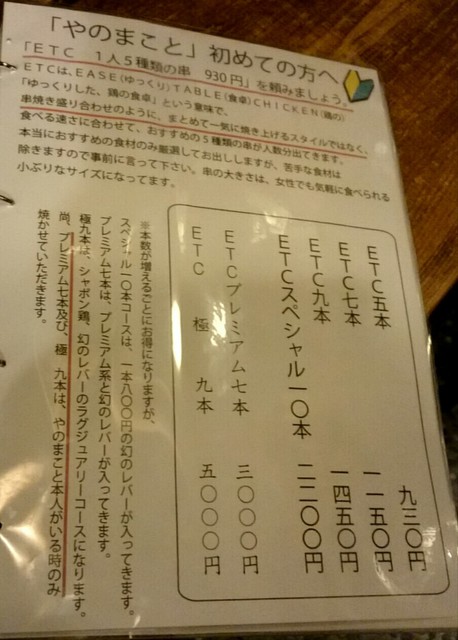 「やのまこと」初めての方へ
「ETC 1人5種類の串 930円」を頼みましょう。
ETCは、EASE(ゆっくり)TABLE(食卓)CHICKEN(鶏の)
「ゆっくりした、鶏の食卓」という意味で、
串焼き盛り合わせのように、まとめて一気に焼き上げるスタイルではなく、
食べる速さに合わせて、おすすめの5種類の串が人数分出てきます。
本当におすすめの食材のみ厳選してお出ししますが、苦手な食材は
除きますので事前に言って下さい。串の大きさは、女性でも気軽に食べられる
小ぶりなサイズになってます。
ETC五本 九三〇円
ETC七本 一一五〇円
ETC九本 一四五〇円
ETCスペシャル一〇本 二二〇〇円
ETCプレミアム七本 三〇〇〇円
ETC 極 九本 五〇〇〇円
※本数が増えるごとにお得になりますが、
スペシャル一〇本コースは、一本八〇〇円の幻のレバーが入ってきます。
プレミアム七本は、プレミアム系と幻のレバーが入ってきます。
極九本は、シャポン鶏、幻のレバーのラグジュアリーコースになります。
尚、プレミアム七本及び、極 九本は、やのまこと本人がいる時のみ
焼かせていただきます。